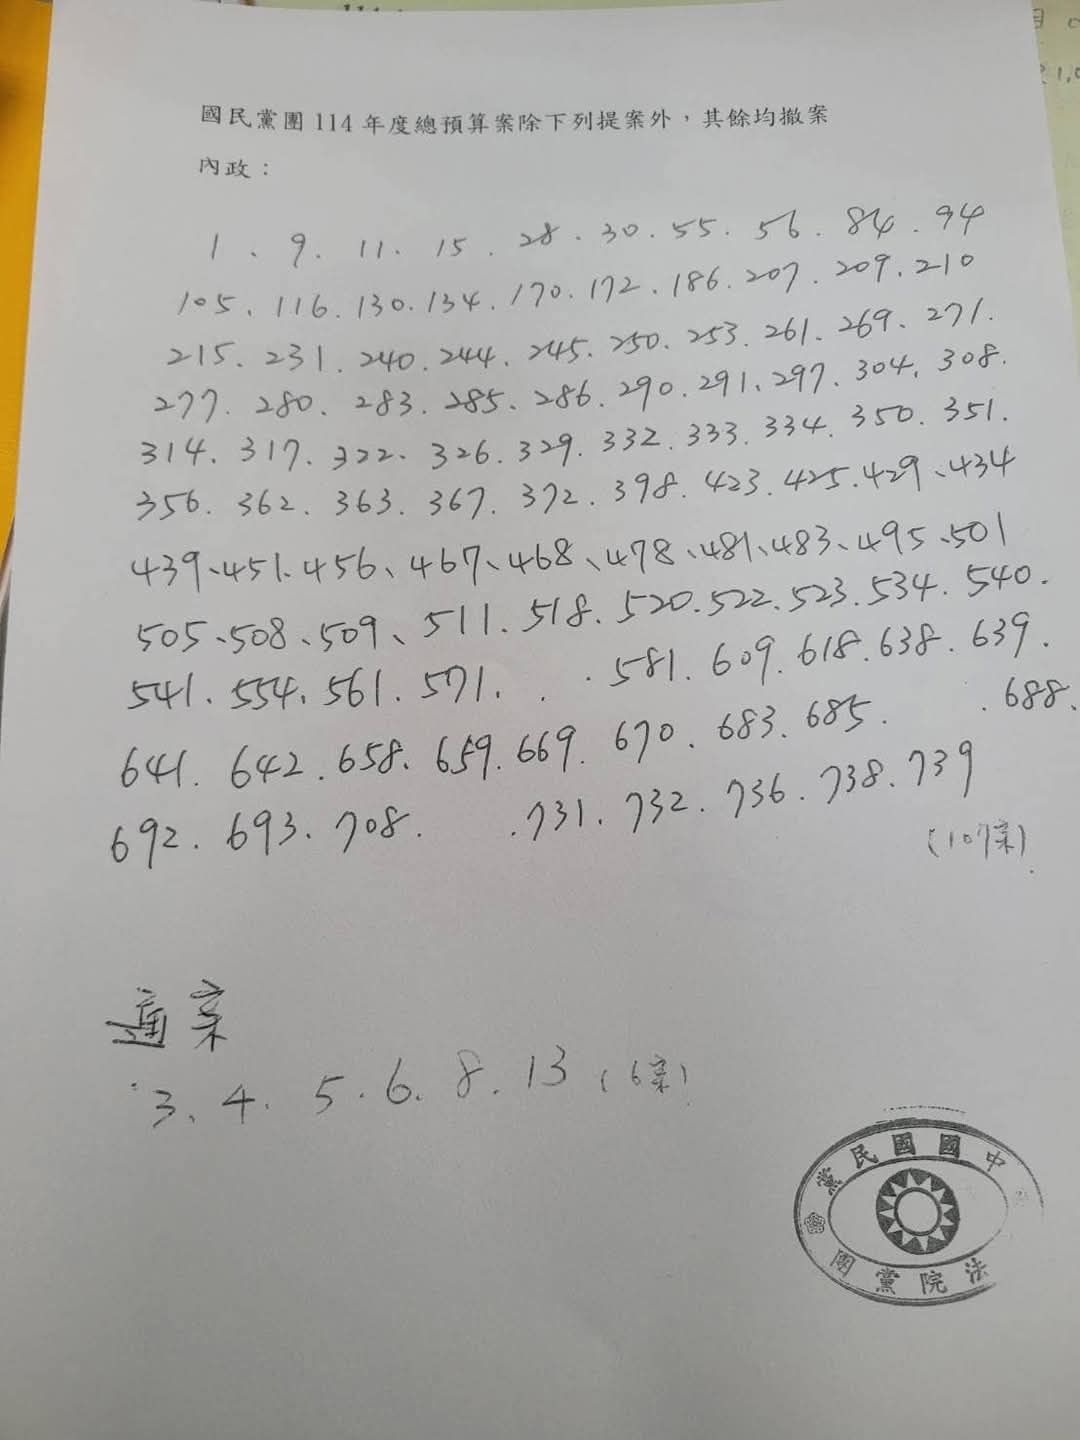 國民黨團 114 年度總預算案除下列提案外，其餘均撤案
內政：
1、9、11、15、28、30、55、56、84、94
105、116、130、134、170、172、186、207、209、210
215、231、240、244、245、250、253、261、269、271、
277、280、283、285、286、290、291、297、304、308、
314、317、322、326、329、332、333、334、350、351、
356、362、363、367、372、398、423、425、429、434
439、451、456、467、468、478、481、483、495、501
505、508、509、511、518、520、522、523、534、540、
541、554、561、571、581、609、618、638、639、
641、642、658、659、669、670、683、685、688、
692、693、708、731、732、736、738、739
(107案)
通案
3、4、5、6、8、13 (6案)
中國國民黨
立法院黨團